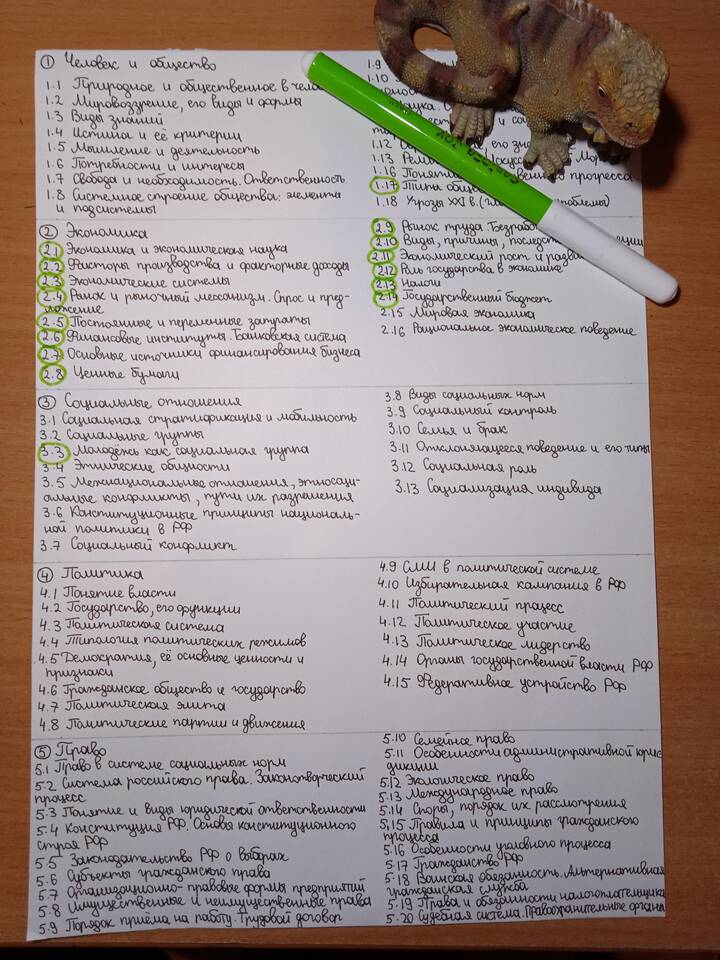 ① Человек и общество
1.1 Природное и общественное в
1.2 Мировоззрение, его виды и формы
1.3 Виды знаний
1.4 Истина и её критерии
1.5 Мышление и деятельность
1.6 Потребности и интересы
1.7 Свобода и необходимость. Ответственность
1.8 Системное строение общества: элемента
и подсистемы
1.9
1.10
1.12 его
1.13
1.16 прогресса
1.17 Типы
1.18 Угрозы XXI в.
② Экономика
2.1 Экономика и экономическая наука
2.2 Факторы производства и факторные доходы
2.3 Экономические системы
2.4 Рынок и рыночный механизм. Спрос и пред-
ложение
2.5 Постоянные и переменные затраты
2.6 Финансовые институты. Банковская система
2.7 Основные источники финансирования бизнеса
2.8 Ценные бумаги
2.9 Рынок труда.
2.10 Виды, причины,
2.11 Экономический рост и
2.12 Роль государства в экономике
2.13 Налоги
2.14 Государственный бюджет
2.15 Мировая экономика
2.16 Рациональное экономическое поведение
③ Социальные отношения
3.1 Социальная стратификация и мобильность
3.2 Социальные группы
3.3 Молодёжь как социальная группа
3.4 Этнические общности
3.5 Межнациональные отношения, этносоци-
альные конфликты, пути их разрешения
3.6 Конституционные принципы националь-
ной политики в РФ
3.7 Социальный конфликт
3.8 Виды социальных норм
3.9 Социальный контроль
3.10 Семья и брак
3.11 Отклоняющееся поведение и его типы
3.12 Социальная роль
3.13 Социализация индивида
④ Политика
4.1 Понятие власти
4.2 Государство, его функции
4.3 Политическая система
4.4 Типология политических режимов
4.5 Демократия, её основные ценности и
признаки
4.6 Гражданское общество и государство
4.7 Политическая элита
4.8 Политические партии и движения
4.9 СМИ в политической системе
4.10 Избирательная кампания в РФ
4.11 Политический процесс
4.12 Политическое участие
4.13 Политическое лидерство
4.14 Органы государственной власти РФ
4.15 Федеративное устройство РФ
⑤ Право
5.1 Право в системе социальных норм
5.2 Система российского права. Законотворческий
процесс
5.3 Понятие и виды юридической ответственности
5.4 Конституция РФ. Основы конституционного
строя РФ
5.5 Законодательство РФ о выборах
5.6 Субъекты гражданского права
5.7 Организационно-правовые формы предприятий
5.8 Имущественные и неимущественные права
5.9 Порядок приёма на работу. Трудовой договор
5.10 Семейное право
5.11 Особенности административной юрис
дикции
5.12 Экологическое право
5.13 Международное право
5.14 Споры, порядок их рассмотрения
5.15 Правила и принципы гражданского
процесса
5.16 Особенности уголовного процесса
5.17 Гражданство РФ
5.18 Воинская обязанность. Альтернативная
гражданская служба
5.19 Права и обязанности налогоплательщика
5.20 Судебная система. Правоохранительные органы